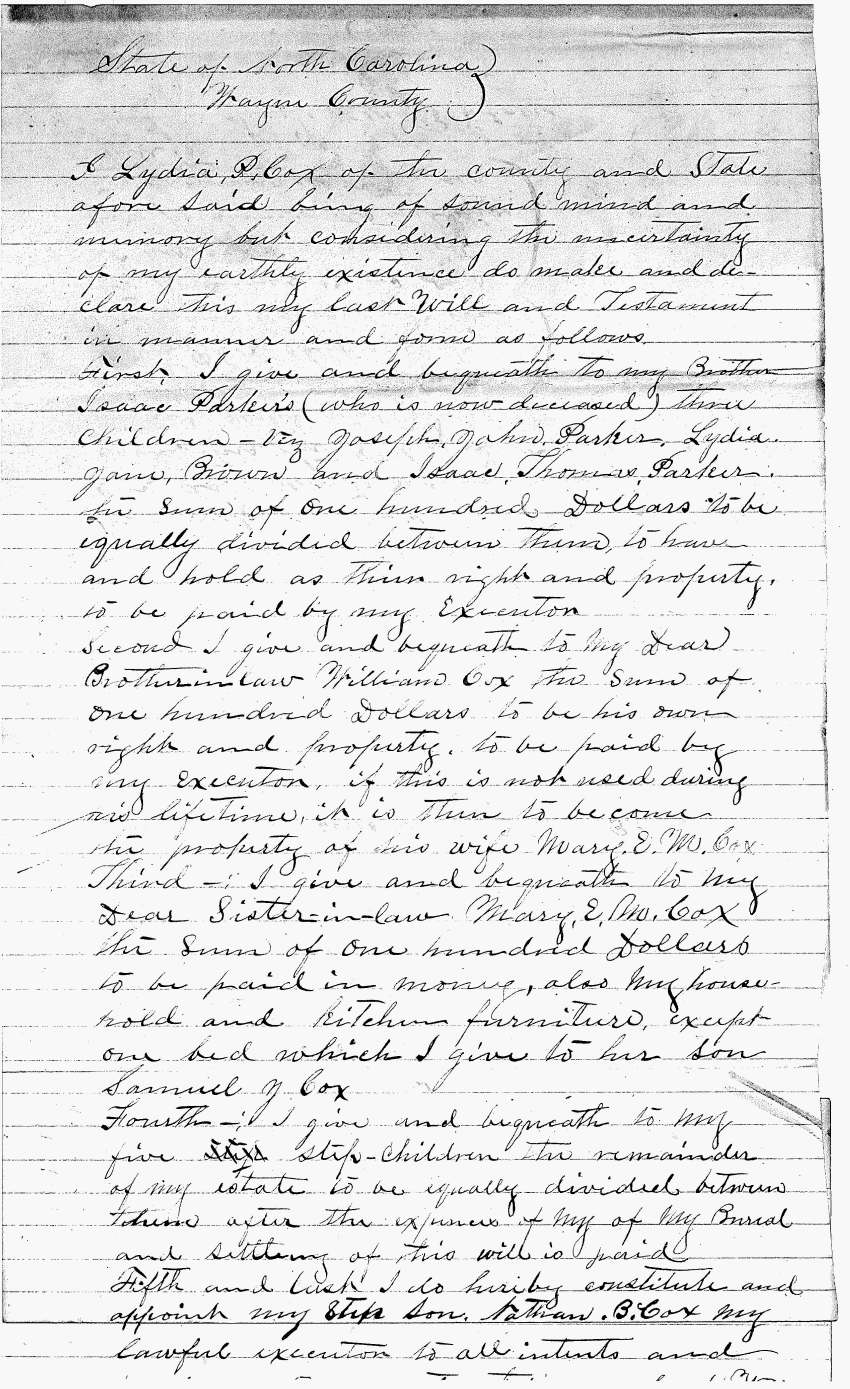 State of North Carolina)
Wayne County )
I Lydia, P. Cox of the county and State
afore said being of sound mind and
memory but considering the uncertainty
of my earthly existence do make and de-
clare this my last Will and Testament
in manner and form as follows.
First, I give and bequeath to my Brother
Isaac Parker's (who is now deceased) three
children - viz Joseph, John, Parker, Lydia.
Jane, Brown and Isaac, Thomas, Parker.
the sum of one hundred Dollars to be
equally divided between them, to have
and hold as their right and property.
to be paid by my Executor
Second I give and bequeath to my Dear
Brother in law William Cox the sum of
one hundred Dollars to be his own
right and property. to be paid by
my Executor, if this is not used during
his lifetime, it is then to become
the property of his wife Mary, E. M. Cox
Third -: I give and bequeath to my
Dear Sister-in-law Mary, E, M. Cox
the sum of one hundred Dollars
to be paid in money, also my house-
hold and kitchen furniture, except
one bed which I give to her son
Samuel Y Cox
Fourth -: I give and bequeath to my
five step-children the remainder
of my estate to be equally divided between
them after the expences of my of my Burial
and settleing of this will is paid
Fifth and last I do hereby constitute and
appoint my Step son. Nathan. B. Cox my
lawful executor to all intents and